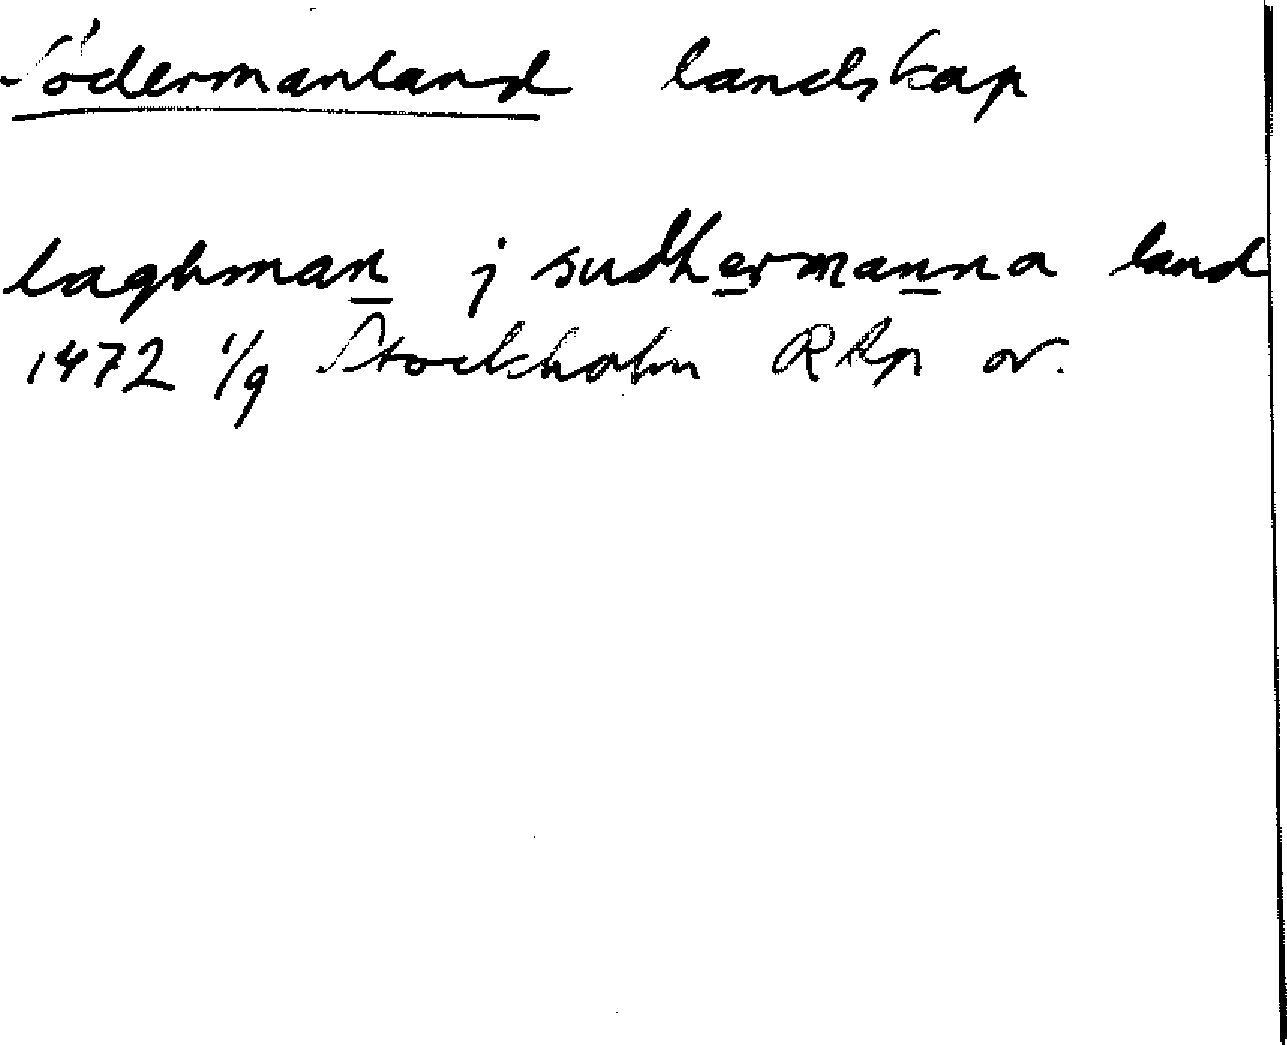 Södermanland landskap
laghman j sudhermanna land
1472 1/9 Stockholm RAp or.